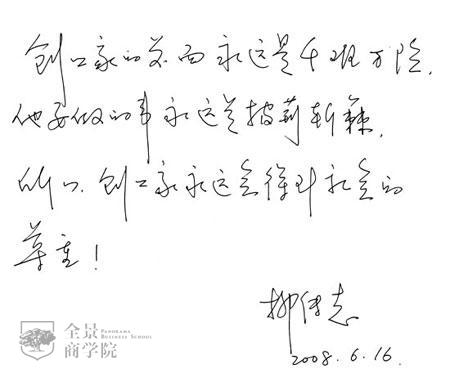 创业家的前面永远是千难万险,
他要做的事永远是披荆斩棘,
所以,创业家永远会得到社会的
尊重!
柳传志
2008.6.16.
全景
商学院
PANORAMA
BUSINESS SCHOOL